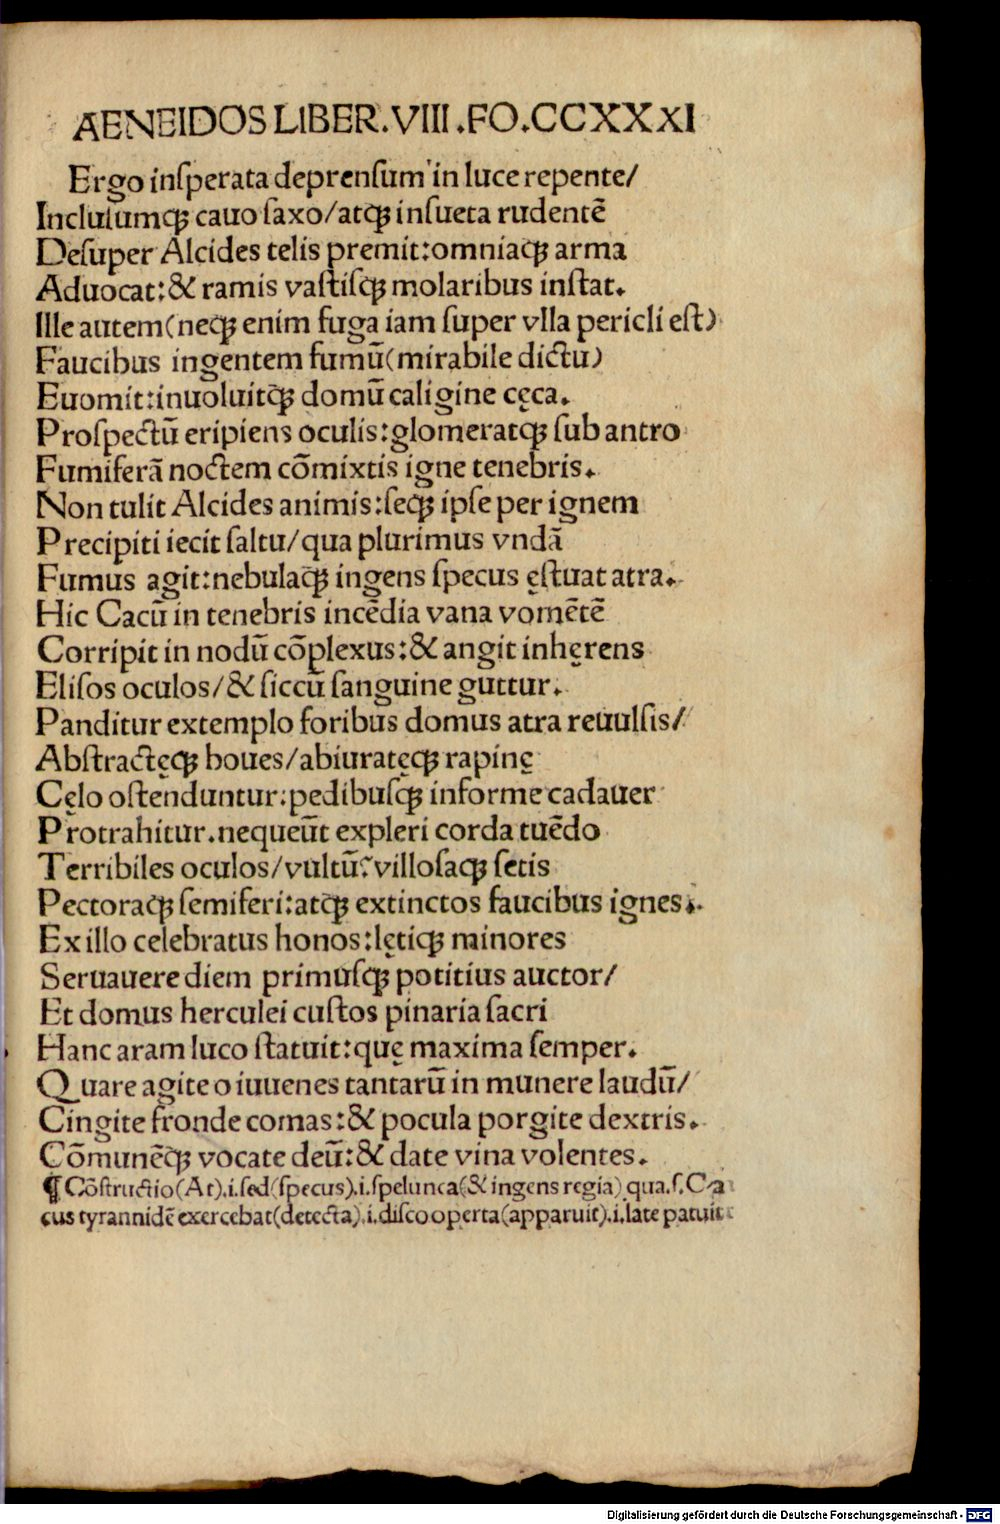 AENEIDOS LIBER.VIII.FO.CCXXXI
Ergo inſperata deprenſum in luce repente/
Incluſumqꝫ cauo ſaxo/atqꝫ inſueta rudentē
Deſuper Alcides telis premit:omniaqꝫ arma
Aduocat:& ramis vaſtiſqꝫ molaribus inſtat.
Ille autem(neqꝫ enim fuga iam ſuper vlla pericli eſt)
Faucibus ingentem fumū(mirabile dictu)
Euomit:inuoluitqꝫ domū caligine cęca.
Proſpectū eripiens oculis:glomeratqꝫ ſub antro
Fumiferā noctem cōmixtis igne tenebris.
Non tulit Alcides animis:ſeqꝫ ipſe per ignem
Precipiti iecit ſaltu/qua plurimus vndā
Fumus agit:nebulaqꝫ ingens ſpecus ęſtuat atra.
Hic Cacū in tenebris incēdia vana vomētē
Corripit in nodū cōplexus:& angit inhęrens
Eliſos oculos/& ſiccū ſanguine guttur.
Panditur extemplo foribus domus atra reuulſis/
Abſtractęqꝫ boues/abiuratęqꝫ rapinę
Cęlo oſtenduntur:pedibuſqꝫ informe cadauer
Protrahitur.nequeūt expleri corda tuēdo
Terribiles oculos/vultū:villoſaqꝫ ſetis
Pectoraqꝫ ſemiferi:atqꝫ extinctos faucibus ignes.
Ex illo celebratus honos:lętiqꝫ minores
Seruauere diem primuſqꝫ potitius auctor/
Et domus herculei cuſtos pinaria ſacri
Hanc aram luco ſtatuit:quę maxima ſemper.
Quare agite o iuuenes tantarū in munere laudū/
Cingite fronde comas:& pocula porgite dextris.
Cōmunēqꝫ vocate deū:& date vina volentes.
¶ Cōſtructio(At).i.ſed(ſpecus).i.ſpelunca(& ingens regia) qua.ſ.Ca
cus tyrannidē exercebat(detecta).i.diſcooperta(apparuit).i.late patuit
Digitalisierung gefördert durch die Deutsche Forschungsgemeinschaft - DFG